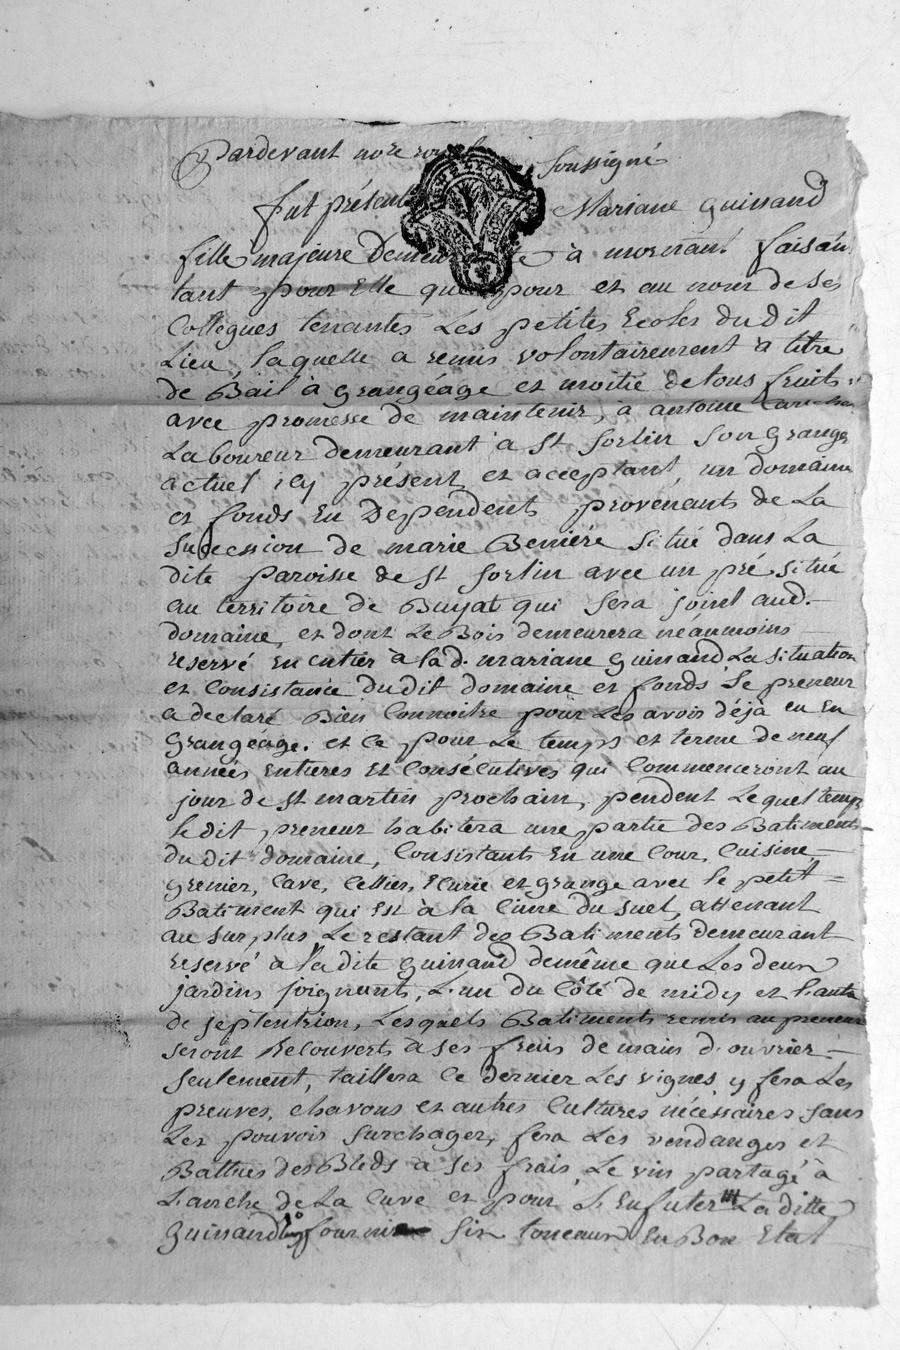 Pardevant no.re royal soussigné
fut présente Mariane guinand
fille majeure Demeurante à mornant faisan
tant pour Elle que pour et au nom de ses
Collegues tenantes Les petites Ecoles du dit
Lieu, laquelle a remis volontairement à titre
de Bail à grangéage et moitié de tous fruits
avec promesse de maintenir, à antoine
Laboureur demeurant à St Sorlin son granger
actuel icy présent et acceptant, un domaine
et fonds En Dependents provenants de La
Succession de marie Beniére situé dans La
dite paroisse de St Sorlin avec un pré situé
au territoire de Buyat qui sera joint aud.
domaine, et dont Le Bois demeurera néanmoins
reservé En entier à la d. mariane guinand La situation
et Consistance du dit domaine et fonds le preneur
a declaré Bien Connoitre pour Les avoir déjà eu En
grangéage. et ce pour Le temps et terme de neuf
années Entieres Et Consécutives qui Commenceront au
jour de St martin prochain, pendent Lequel temps
le dit preneur habitera une partie des Batiments
du dit domaine, Consistants En une Cour, Cuisine
grenier, Cave, Cellier, Ecurie et grange avec le petit
Batiment qui Est à la Cime du suel, attenant
au surplus Le restant des Batiments demeurant
reservé à la dite guinand demême que Les deux
jardins joignants, L'un du Côté de midy et l'autre
de septentrion, Lesquels Batiments remis au preneur
seront Recouverts à ses frais de main d'ouvrier
seulement, taillera Ce dernier Les vignes y fera Les
preuves, chavons et autres Cultures nécessaires sans
Les pouvoir surchager, fera Les vendanges et
Battues des Bleds à ses frais, Le vin partagé à
L'anche de La Cuve et pour L'Enfuter La ditte
guinand fournir six toneaux En Bon Etat